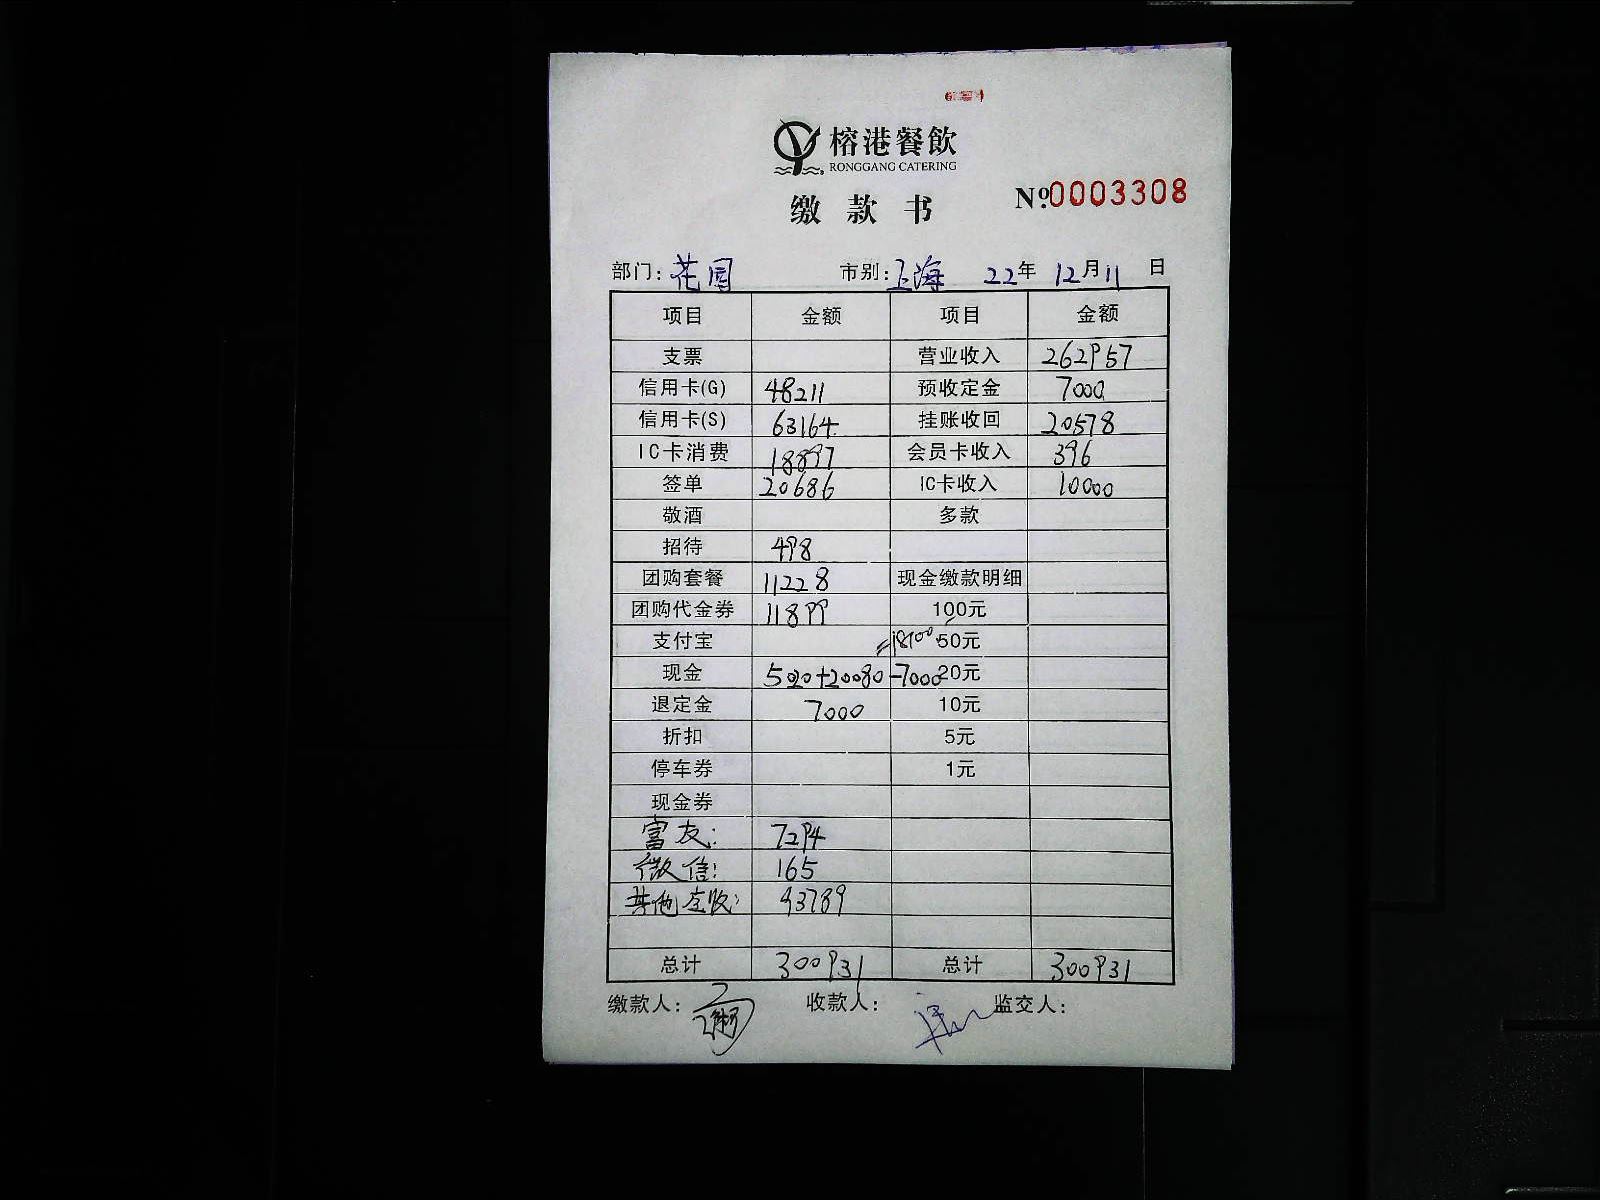 榕港餐飲
RONGGANG CATERING
缴款书 №0003308
部门: 花园 市别: 上海 22年 12月 11 日
项目 金额 项目 金额
支票 营业收入 262957
信用卡(G) 48211 预收定金 7000
信用卡(S) 63164 挂账收回 20578
IC卡消费 18897 会员卡收入 396
签单 20686 IC卡收入 10000
敬酒 多款
招待 498
团购套餐 11228 现金缴款明细
团购代金券 11899 100元
支付宝 =18100 50元
现金 5020+20080-7000 20元
退定金 7000 10元
折扣 5元
停车券 1元
现金券
富友: 7294
微信: 165
其他应收: 93789
总计 300931 总计 300931
缴款人: 收款人: 监交人: